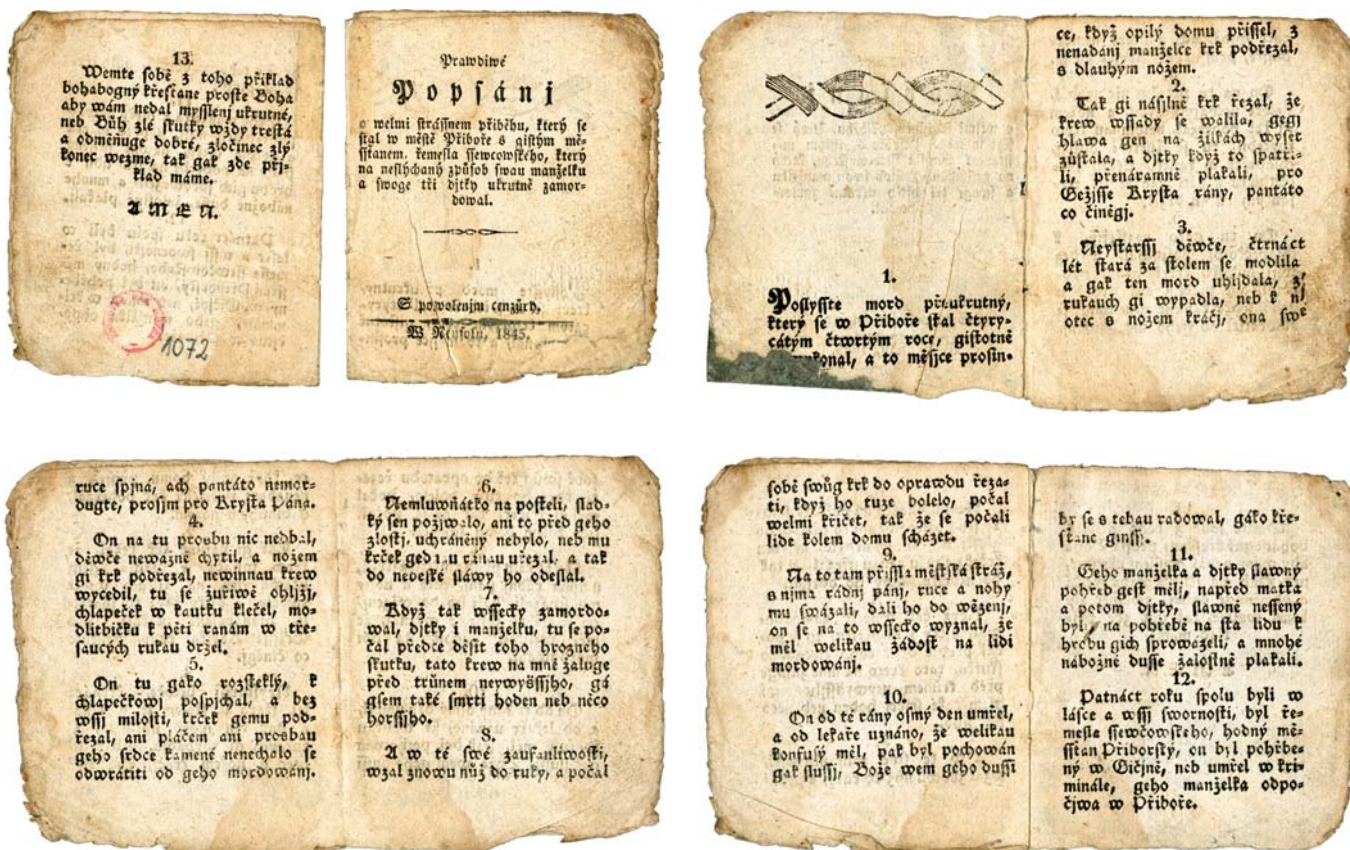 13.
Wemte sobě z toho přiklad
bohabogný křesťane proste Boha
aby wám nedal mysslenj ukrutné,
neb Bůh zlé skutky wždy trestá
a odměnuge dobré, zločinec zlý
konec wezme, tak gak zde přj-
klad máme.
AMEN.
1072
Prawdiwé
Popsánj
o welmi strássnem přiběhu, který se
stal w městě Přiboře s gistým mě-
sstanem, řemesla ssewcowského, který
na neslýchaný způsob swau manželku
a swoge tři djtky ukrutně zamor-
dowal.
S powolenjm cenzůrd.
W 1845.
1.
Poslyšste mord přeukrutný,
který se w Přiboře stal čtyry-
cátým čtwrtým roce, gistotně
a to měsjce prosin-
ce, když opilý domu přissel, z
nenadánj manželce krk podřezal,
s dlauhým nožem.
2.
Tak gi násylně krk řezal, že
krew wssady se walila, gegj
hlawa gen na žilkách wyset
zůstala, a djtky když to spatři-
li, přenáramně plakali, pro
Gežjsse Krysta rány, pantáto
co činěgj.
3.
Neystarssj děwče, čtrnáct
lét stará za stolem se modlila
a gak ten mord uhljdala, z
rukauch gi wypadla, neb k nj
otec s nožem kráčj, ona swé
ruce spjná, ach pantáto nemor-
dugte, prosjm pro Krysta Pána.
4.
On na tu prosbu nic nedbal,
děwče newažně chytil, a nožem
gi krk podřezal, newinnau krew
wycedil, tu se zuřiwě ohljžj,
chlapeček w kautku klečel, mo-
dlitbičku k pěti ranám w tře-
saucých rukau držel.
5.
On tu gako rozsteklý, k
chlapečkowj pospjchal, a bez
wssj milosti, krček gemu pod-
řezal, ani pláčem ani prosbau
geho srdce kamené nenechalo se
odwrátiti od geho mordowánj.
6.
Nemluwňátko na posteli, slad-
ký sen požjwalo, ani to před geho
zlostj, uchráněný nebylo, neb mu
krček gednau ránau uřezal, a tak
do nebeské sláwy ho odeslal.
7.
Když tak wssecky zamordo-
wal, djtky i manželku, tu se po-
čal předce děsit toho hrozného
skutku, tato krew na mně žaluge
před trůnem neywyšssjho, gá
gsem také smrti hoden neb něco
horssjho.
8.
A w té swé zaufanliwosti,
wzal znowu nůž do ruky, a počal
sobě swůg krk do oprawdu řeza-
ti, když ho tuze bolelo, počal
welmi křičet, tak že se počali
lide kolem domu scházet.
9.
Na to tam přissla městská stráž,
s njma rádnj pánj, ruce a nohy
mu swázali, dali ho do wězenj,
on se na to wssecko wyznal, že
měl welikau žádost na lidi
mordowánj.
10.
On od té rány osmý den umřel,
a od lekaře uznáno, že welikau
konfusý měl, pak byl pochowán
gak slussj, Bože wem geho dussi
by se s tebau radowal, gáko kře-
stanc ginssj.
11.
Geho manželka a djtky slawný
pohřeb gest měly, napřed matka
a potom djtky, slawně nessený
byly na pohřebě na sta lidu k
hrobu gich sprowázeli, a mnohé
nábožné dusse žalostně plakali.
12.
Patnáct roku spolu byli w
lásce a wssj swornosti, byl ře-
mesla ssewčowskeho, hodný mě-
sstan Přiborský, on byl pohřbe-
ný w Gičjně, neb umřel w kri-
minále, geho manželka odpo-
čjwa w Přiboře.